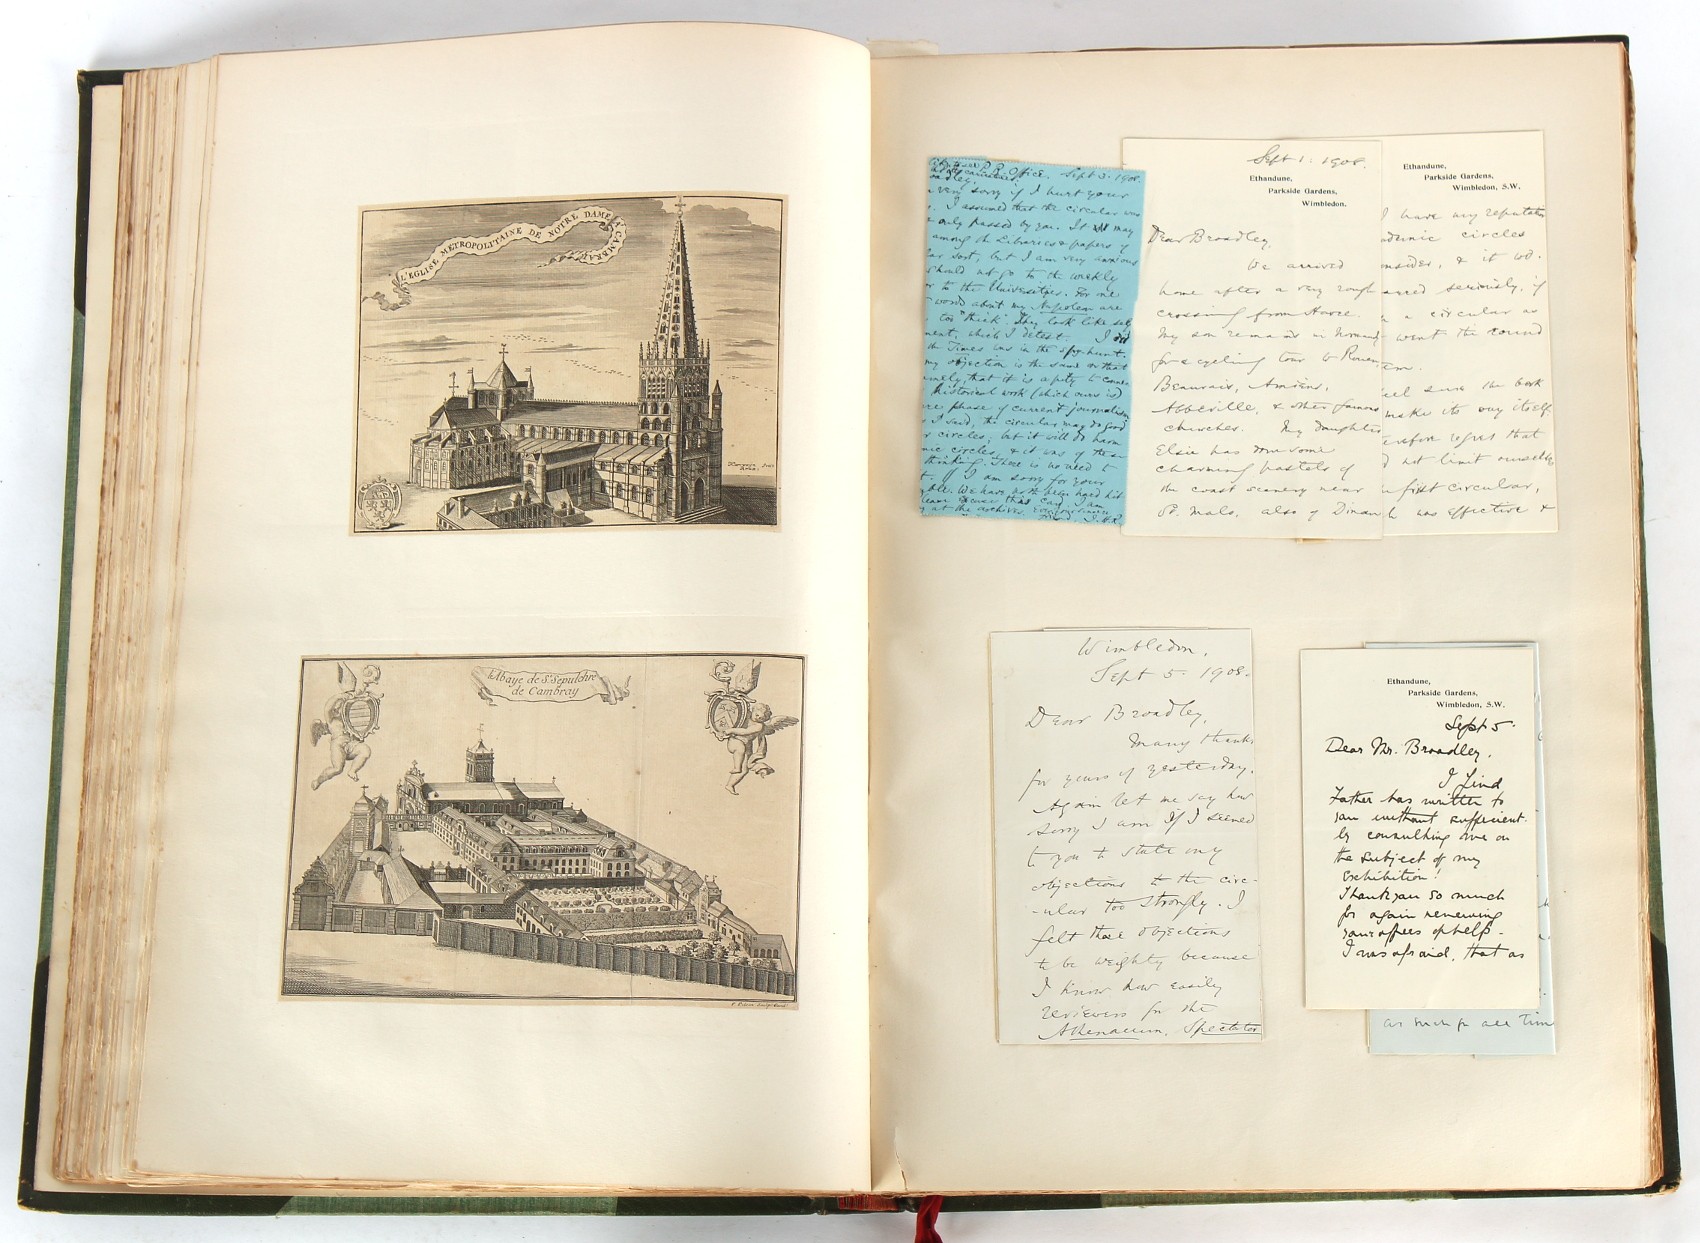 L'EGLISE METROPOLITAINE DE NOTRE DAME A CAMBRAY
Harrewin fecit
l'Abaye de St. Sepulchre
de Cambray
Office, Sept 3. 1908.
very sorry if I hurt your
I assumed that the circular was
only passed by you. It may
among the Libraries & papers of
sort, but I am very anxious
should not go to the weekly
or to the Universities. For me
words about my Napoleon are
too "thick". They look like self
ment, which I detest. I
the Times was in the spy hunt.
my objection is the same or that
namely, that it is a pity to
historical work (which ours is)
phase of current journalism
I said, the circular may do good
circles, but it will do harm
circles, & it was of these
thinking. There is no need to
I am sorry for your
Sept 1: 1908.
Ethandune,
Parkside Gardens,
Wimbledon.
Dear Broadley,
We arrived
home after a very rough
crossing from Havre.
My son remains in Normandy
for a cycling tour to Rouen
Beauvais, Amiens,
Abbeville, & other famous
churches. My daughter
Elsie has done some
charming pastels of
the coast scenery near
St. Malo, also of Dinan
Ethandune,
Parkside Gardens,
Wimbledon, S.W.
I have my reputation
circles
consider, & it wd.
seriously, if
a circular as
went the round
feel sure the book
make its way itself
therefore regret that
not limit ourselves
first circular,
was effective &
Wimbledon,
Sept 5. 1908.
Dear Broadley,
Many thanks
for yours of yesterday.
Again let me say how
sorry I am if I seemed
to you to state my
objections to the circ-
-ular too strongly. I
felt those objections
to be weighty because
I know how easily
reviewers for the
Athenaeum, Spectator
Ethandune,
Parkside Gardens,
Wimbledon, S.W.
Sept 5.
Dear Mr. Broadley,
I find
Father has written to
you without sufficient-
ly consulting me on
the subject of my
exhibition!
Thank you so much
for again renewing
your offers of help.
I was afraid, that as
as such for all time